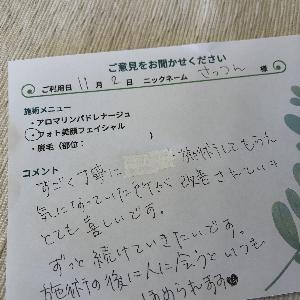 ご意見をお聞かせください
ご利用日 11 月 2 日 ニックネーム さっつん 様
施術メニュー
・アロマリンパドレナージュ
・フォト美顔フェイシャル
・脱毛（部位： ）
コメント
すごく丁寧に 施術してもらえ
気になっていた が 改善されていき
とても嬉しいです。
ずっと続けていきたいです。
施術の後に人に会うといつも
ほめられます